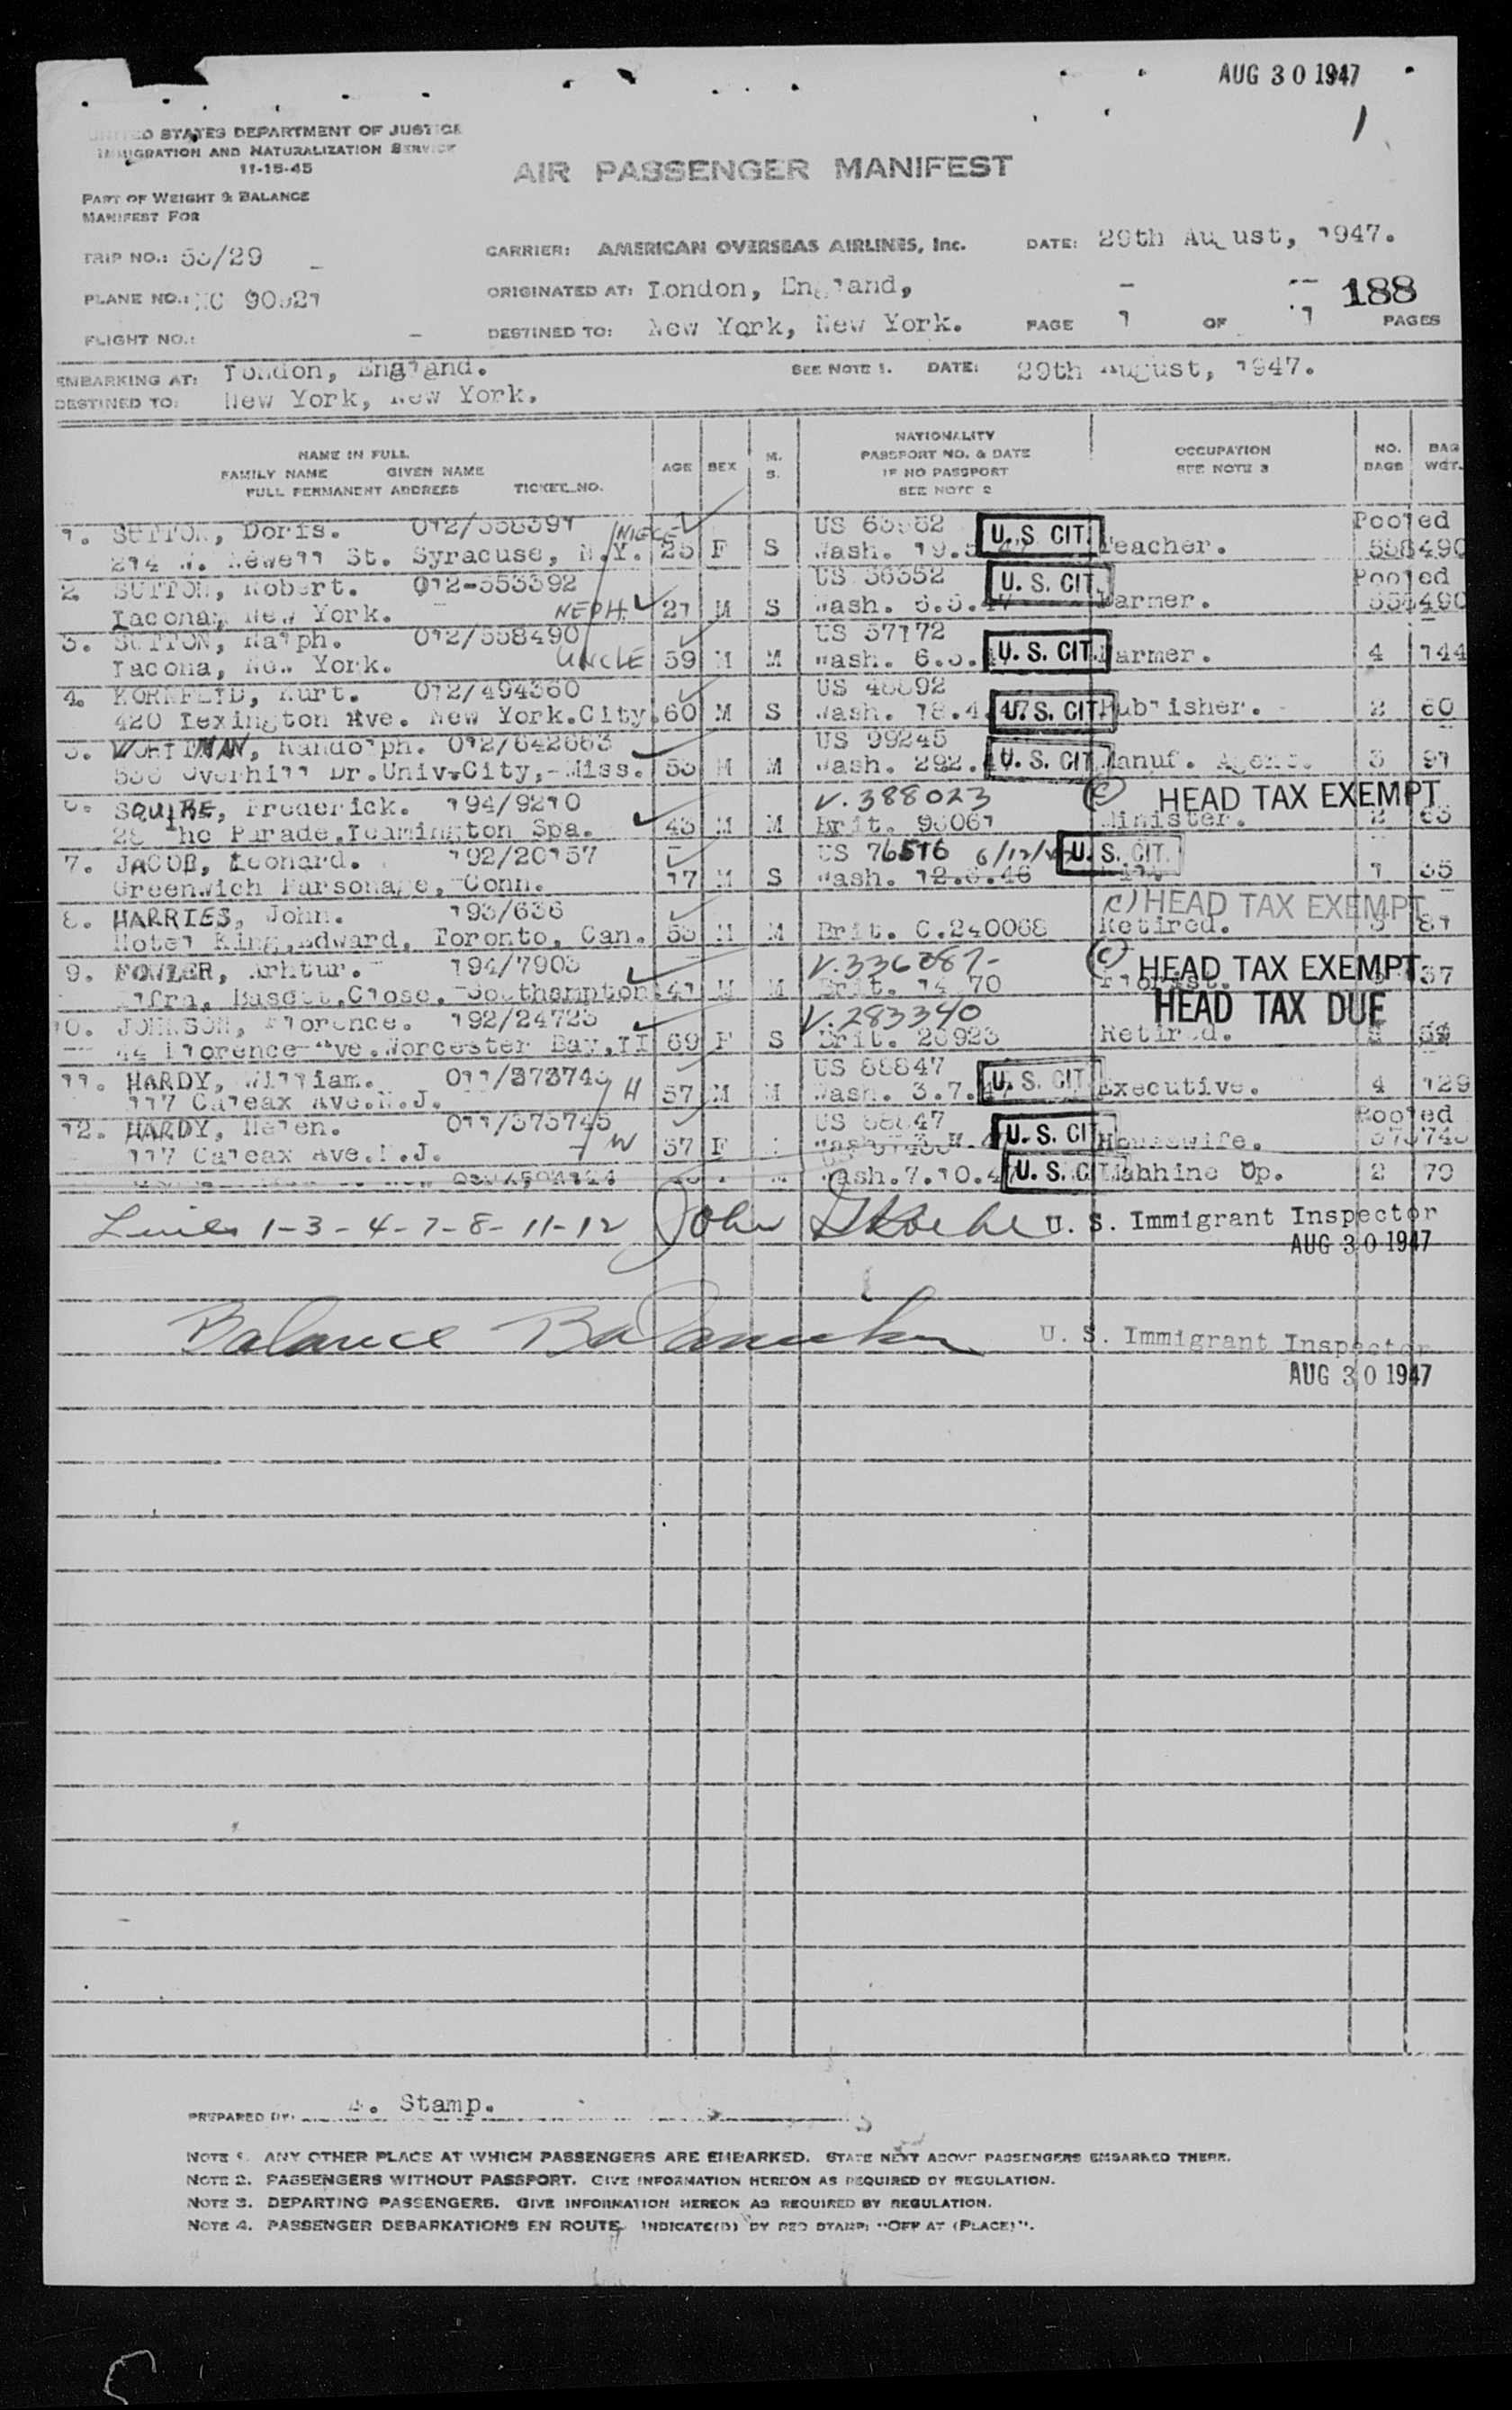 AUG 30 1947
1
UNITED STATES DEPARTMENT OF JUSTICE
IMMIGRATION AND NATURALIZATION SERVICE
11-15-45
AIR PASSENGER MANIFEST
PART OF WEIGHT & BALANCE
MANIFEST FOR
TRIP NO.:
CARRIER: AMERICAN OVERSEAS AIRLINES, Inc. DATE: 29th August, 1947.
PLANE NO.:
ORIGINATED AT: London, England,
188
FLIGHT NO.: - DESTINED TO: New York, New York. PAGE 1 OF 1 PAGES
EMBARKING AT: London, England. SEE NOTE 1. DATE: 29th August, 1947.
DESTINED TO: New York, New York.
NAME IN FULL
FAMILY NAME GIVEN NAME
FULL PERMANENT ADDRESS TICKET NO.
AGE SEX M. S.
NATIONALITY
PASSPORT NO. & DATE
IF NO PASSPORT
SEE NOTE 2
OCCUPATION
SEE NOTE 3
NO. BAGS
BAG WGT.
1. SUTTON, Doris. NIECE US U.S. CIT. Pooled
St. Syracuse, N.Y. 25 F S Wash. Teacher. 558490
2. SUTTON, Robert. US 36352 U. S. CIT. Pooled
New York. NEPH. 21 M S Wash. Farmer.
3. SUTTON, Ralph. 012/558490 US 37172
New York. UNCLE 59 M M Wash. U. S. CIT. Farmer. 4 144
4. Kurt. 012/494360 US
420 Lexington Ave. New York.City. 60 M S Wash. 18.4.47 U. S. CIT. Publisher. 2 60
5. WORTMAN, Randolph. US 99245
Overhill Dr.Univ.City,-Miss. 53 M M Wash. U. S. CIT. Manuf. Agent. 3 91
6. SQUIRE, Frederick. 194/9210 V.388023 (C) HEAD TAX EXEMPT
The Parade,Leamington Spa. 43 M M Brit. Minister. 2 63
7. JACOB, Leonard. 192/20157 US 76516 6/12/47 U. S. CIT.
Greenwich Parsonage, Conn. 17 M S Wash. 1 35
8. HARRIES, John. 193/636 (C) HEAD TAX EXEMPT
Hotel King,Edward, Toronto, Can. 53 M M Brit. C.240068 Retired. 81
9. FOWLER, Arhtur. 194/7903 (C) HEAD TAX EXEMPT
Close, Southampton. 41 M M Brit. Florist. 37
HEAD TAX DUE
10. JOHNSON, Florence. 192/24723 V.283340
44 Florence Ave.Worcester 69 F S Brit. Retired.
11. HARDY, William. H US 88847 U. S. CIT
117 Caleax Ave.N.J. 57 M M Wash. 3.7.47 Executive. 4 129
12. HARDY, Helen. 011/373745 W US 88847 U. S. CIT Pooled
117 Caleax Ave.N.J. 57 F Housewife.
Wash.7.10.4 U. S. C Mabhine Op. 2 70
Lines 1-3-4-7-8-11-12 John U. S. Immigrant Inspector
AUG 30 1947
Balance U. S. Immigrant Inspector
AUG 30 1947
PREPARED BY: Stamp.
NOTE 1. ANY OTHER PLACE AT WHICH PASSENGERS ARE EMBARKED. STATE NEXT ABOVE PASSENGERS EMBARKED THERE.
NOTE 2. PASSENGERS WITHOUT PASSPORT. GIVE INFORMATION HEREON AS REQUIRED BY REGULATION.
NOTE 3. DEPARTING PASSENGERS. GIVE INFORMATION HEREON AS REQUIRED BY REGULATION.
NOTE 4. PASSENGER DEBARKATIONS EN ROUTE. INDICATE(D) BY RED STAMP: "OFF AT (PLACE)".